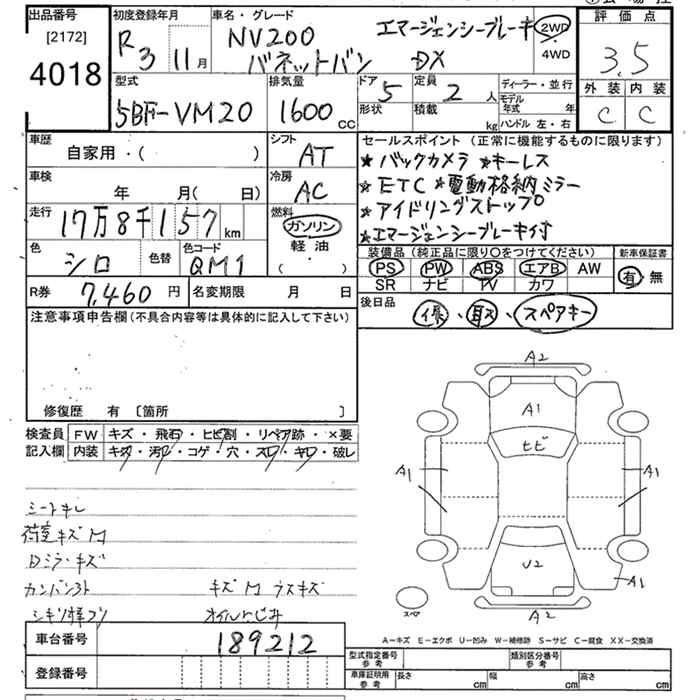 出品番号 [2172] 4018
初度登録年月 R3 11月
車名・グレード NV200 バネットバン エマージェンシーブレーキ DX
2WD 4WD
評価点 3.5
外装 内装
C C
型式 5BF-VM20
排気量 1600 cc
ドア 5 定員 2 人
形状 積載 kg
ディーラー・並行
モデル年式 年
ハンドル 左・右
車歴 自家用・( )
シフト AT
セールスポイント(正常に機能するものに限ります)
★バックカメラ ★キーレス
★ETC ★電動格納ミラー
★アイドリングストップ
★エマージェンシーブレーキ付
車検 年 月( 日)
冷房 AC
走行 17万8千157 km
燃料 ガソリン 軽油・ ( )
色 シロ 色替 色コード QM1
装備品(純正品に限り○をつけてください)
PS PW ABS エアB AW
SR ナビ TV カワ
新車保証書 有・無
R券 7,460 円 名変期限 月 日
後日品 保・取・スペアキー
注意事項申告欄(不具合内容等は具体的に記入して下さい)
修復歴 有〔箇所 〕
検査員記入欄
FW キズ・飛石・ヒビ割・リペア跡・×要
内装 キズ・汚レ・コゲ・穴・スレ・キレ・破レ
シートキレ
荷室キズM
Dミラーキズ
キズM ラスキズ
オイルにじみ
車台番号 189212
登録番号
A2
A1
ヒビ
A1
A1
U2
A1
A2
スペア
A-キズ E-エクボ U-凹み W-補修跡 S-サビ C-腐食 XX-交換済
型式指定番号 参考
類別区分番号 参考
車庫証明用 参考 長さ cm 幅 cm 高さ cm